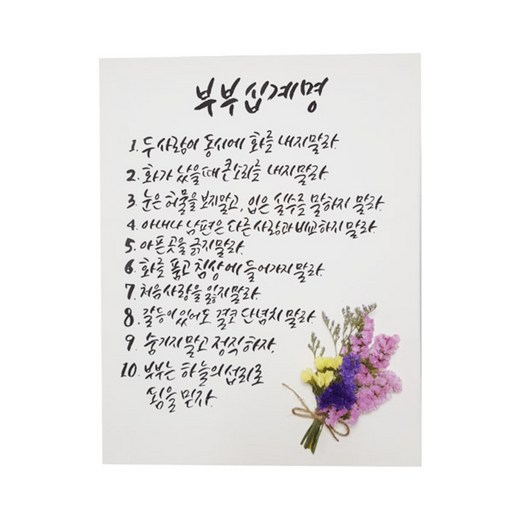 부부십계명
1. 두사람이 동시에 화를 내지말라.
2. 화가 났을때 큰소리를 내지말라.
3. 눈은 허물을 보지말고, 입은 실수를 말하지 말라.
4. 아내나 남편은 다른 사람과 비교하지 말라
5. 아픈곳을 긁지말라.
6. 화를 품고 침상에 들어가지말라.
7. 처음사랑을 잃지말라.
8. 갈등이 있어도 결코 단념치 말라.
9. 숨기지말고 정직하자.
10. 부부는 하늘의 섭리로
됨을 믿자.